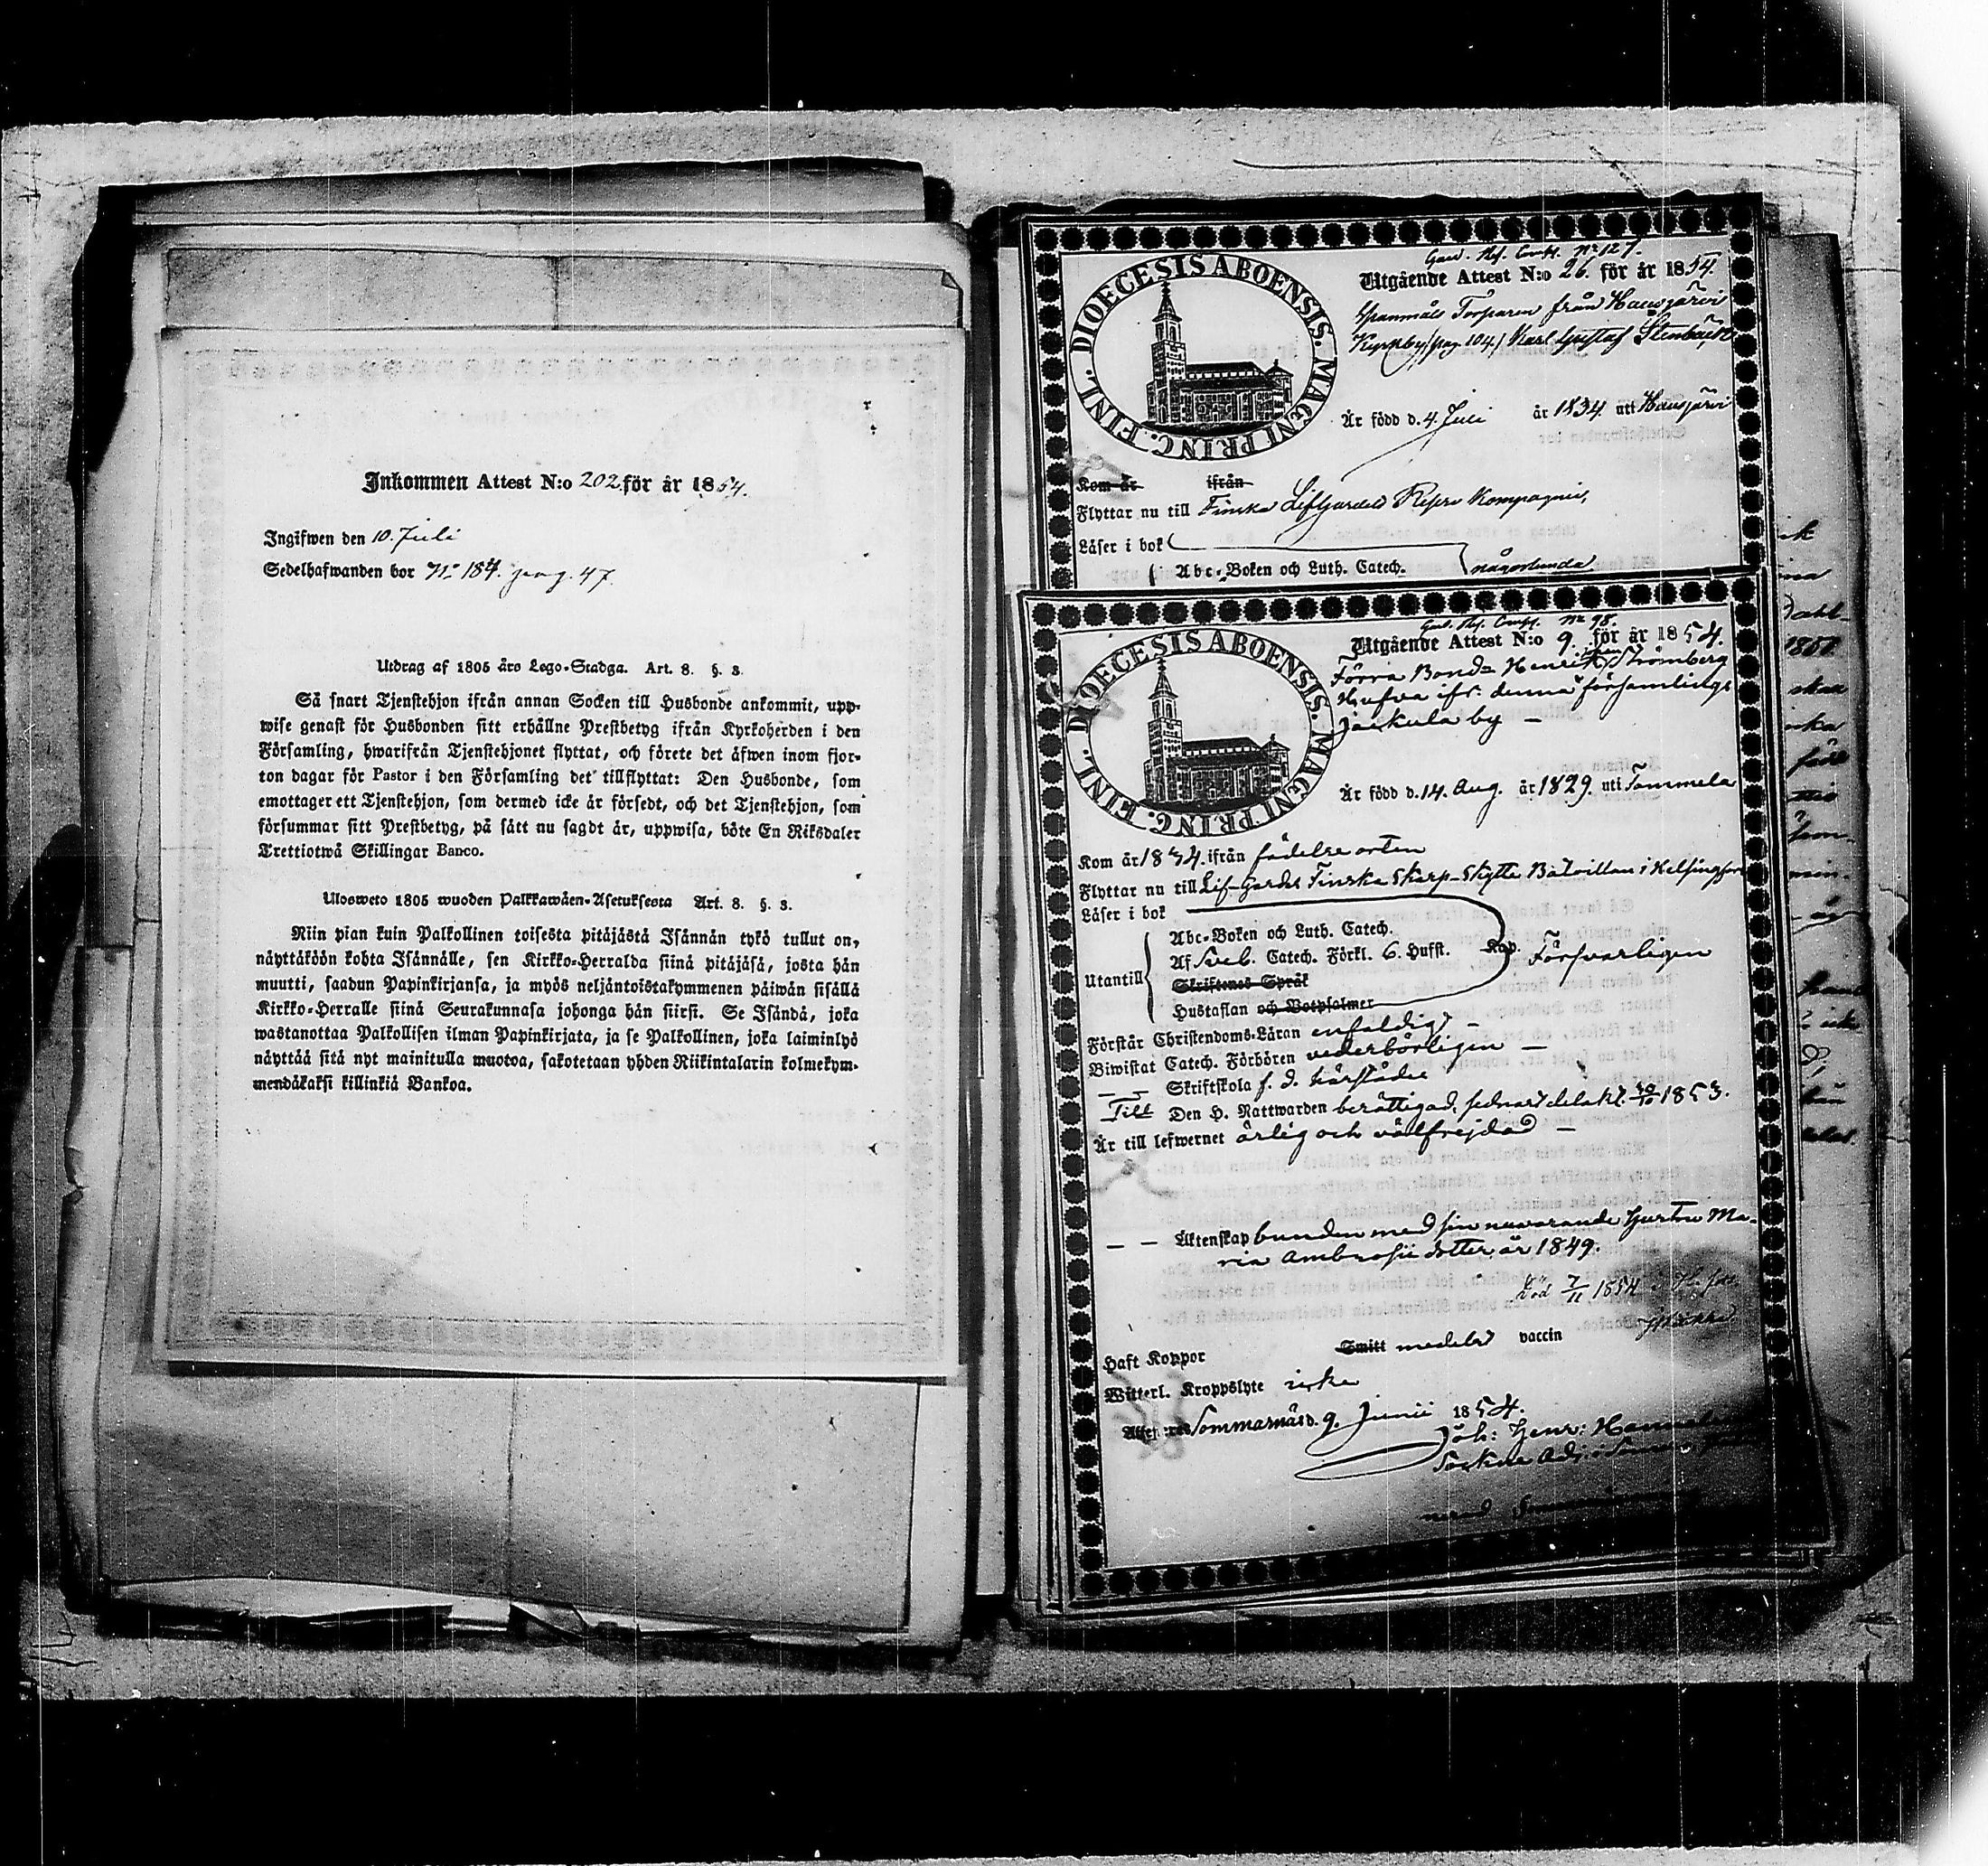 Inkommen Attest N:o 202 för år 1854.
Ingifwen den 10. Juli
Sedelhafwanden bor N:o 184. pag. 47.
Utdrag af 1805 års Lego-Stadga. Art. 8. §. 3.
Så snart Tjenstehjon ifrån annan Socken till Husbonde ankommit, upp-
wise genast för Husbonden sitt erhållne Prestbetyg ifrån Kyrkoherden i den
Församling, hwarifrån Tjenstehjonet flyttat, och förete det äfwen inom fjor-
ton dagar för Pastor i den Församling det tillflyttat: Den Husbonde, som
emottager ett Tjenstehjon, som dermed icke är försedt, och det Tjenstehjon, som
försummar sitt Prestbetyg, på sätt nu sagdt är, uppwisa, böte En Riksdaler
Trettiotwå Skillingar Banco.
Ulosweto 1805 wuoden Palkkawäen-Asetuksesta Art. 8. §. 3.
Niin pian kuin Palkollinen toisesta pitäjästä Isännän tykö tullut on,
näyttäköön kohta Isännälle, sen Kirkko-Herralda siinä pitäjäsä, josta hän
muutti, saadun Papinkirjansa, ja myös neljäntoistakymmenen päiwän sisällä
Kirkko-Herralle siinä Seurakunnasa johonga hän siirsi. Se Isändä, joka
wastanottaa Palkollisen ilman Papinkirjata, ja se Palkollinen, joka laiminlyö
näyttää sitä nyt mainitulla muotoa, sakotetaan yhden Riikintalarin kolmekym-
mendäkaksi killinkiä Bankoa.
DIOECESIS ABOENSIS. MAGNI PRINC. FINL.
Gard. Res. Comp. N:o 127.
Utgående Attest N:o 26. för år 1854.
Spanmåls Torparen från Hausjärvi
Kyrkby (pag 104) Karl Gustaf Stenbäck
Är född d. 4. Juli år 1834 uti Hausjärvi
Kom år ifrån
Flyttar nu till Finska Lifgardets Reserv Kompagnie,
Läser i bok
Abc-Boken och Luth. Catech. någorlunda
DIOECESIS ABOENSIS. MAGNI PRINC. FINL.
Gard. Res. Comp. N:o 98.
Utgående Attest N:o 9. för år 1854.
Förra Bond= Henrik Strömberg
ifr: denna församlings
Jackula by —
Är född d. 14. Aug. år 1829. uti Tammela
Kom år 1834. ifrån födelse orten
Flyttar nu till Lif-Gardes Finska Skarp-Skytte Bataillon i Helsingfors
Läser i bok
Abc-Boken och Luth. Catech.
Utantill Af Sveb. Catech. Förkl. 6. Hufst. Kap. Försvarligen
Skriftenes Språk
Hustaflan och Botpsalmer
Förstår Christendoms-Läran enfaldigt —
Biwistat Catech. Förhören vederbörligen —
— — Skriftskola f. d. härstädes
Till Den H. Nattwarden berättigad, sednast delakt. 30/10 1853.
Är till lefwernet ärlig och välfrejdad —
— — Äktenskap bunden med sin nuvarande hustru Ma-
ria Ambrosii dotter år 1849.
Död 7/11 1854
Haft Koppor Smitt medelst vaccin
Witterl. Kroppslyte icke
Attesteras Sommarnäs d. 9. Junii 1854.
Joh: Henr: